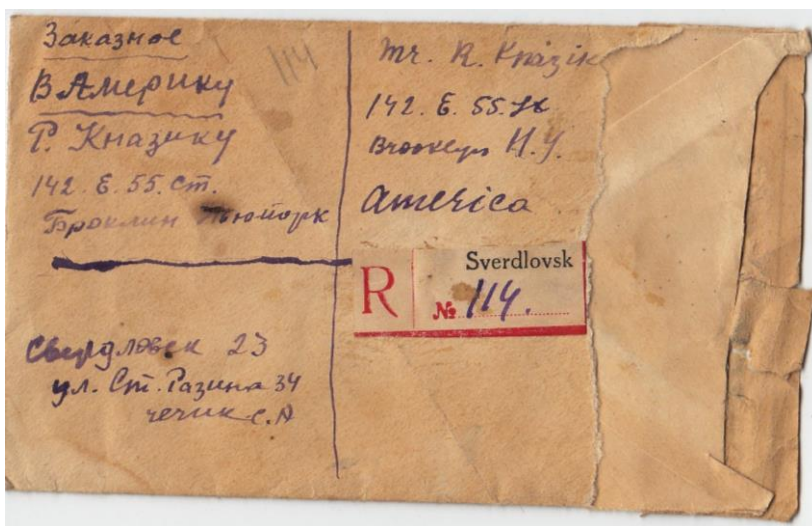 Заказное
114
В Америку
Р. Кназику
142. Е. 55. ст.
Броклин Ньюйорк
Свердловск 23
ул. Ст. Разина 34
чечик С. А
Mr. R. Knazik
142. E. 55. St
Brooklyn N.Y.
America
R
Sverdlovsk
№ 114.